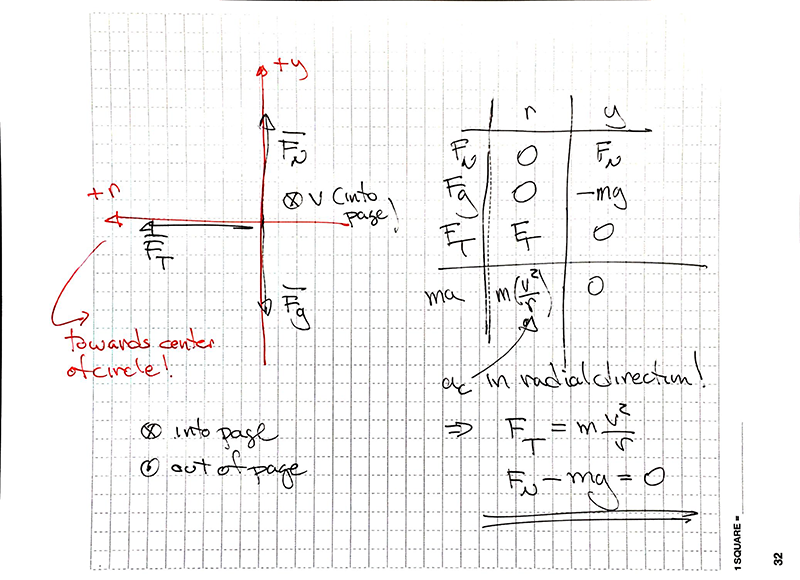 +y
F_N
⊗ v (into page!
+r
F_T
F_g
towards center
of circle!
⊗ into page
⊙ out of page
r y
F_N 0 F_N
F_g 0 -mg
F_T F_T 0
ma m(v²/r) 0
a_c in radial direction!
⇒ F_T = m v²/r
F_N - mg = 0
1 SQUARE =
32